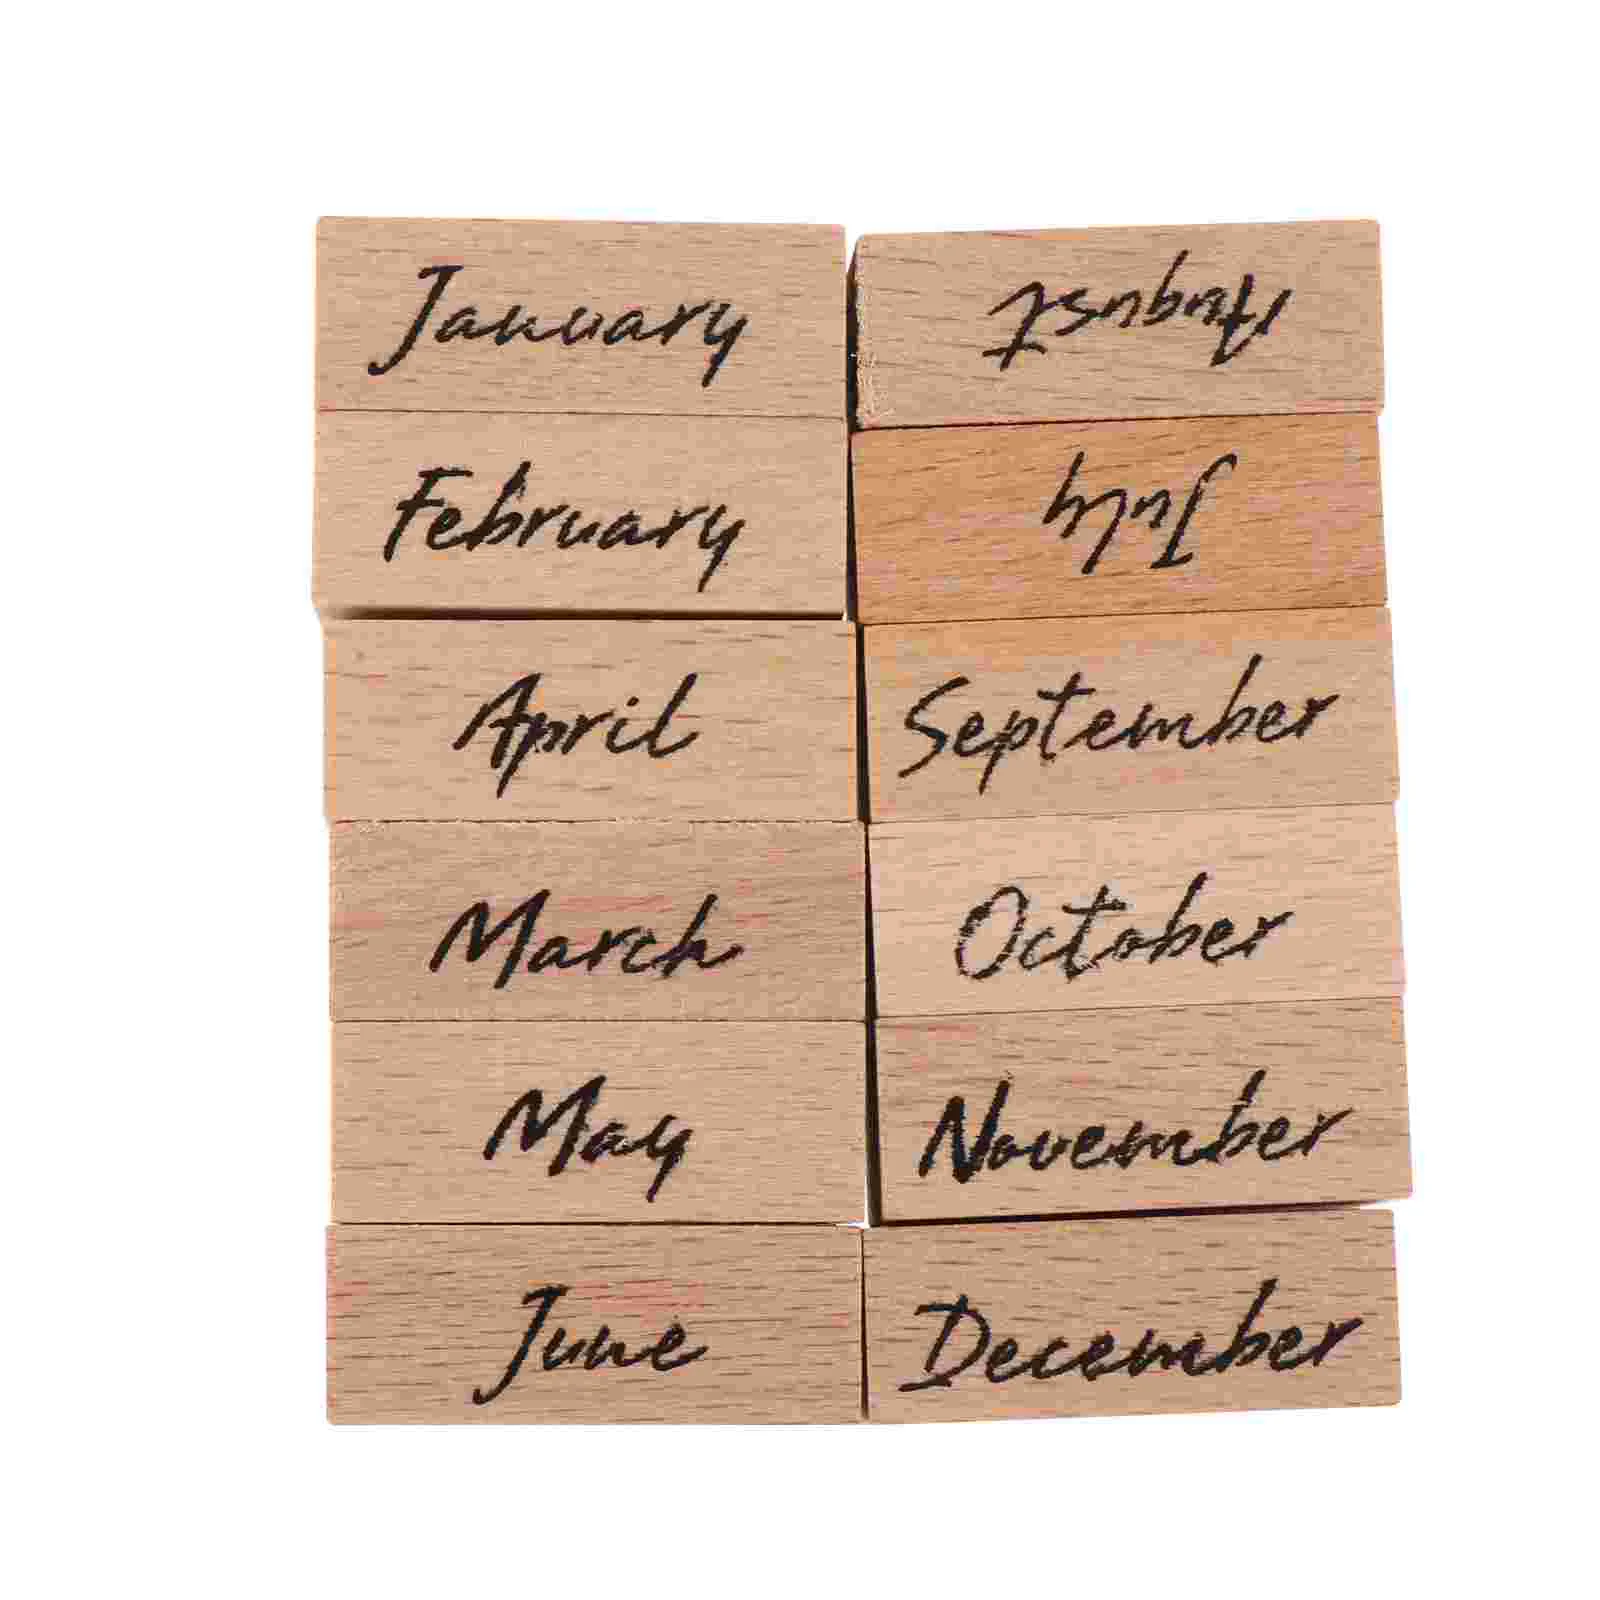 January
February
April
March
May
June
August
July
September
October
November
December